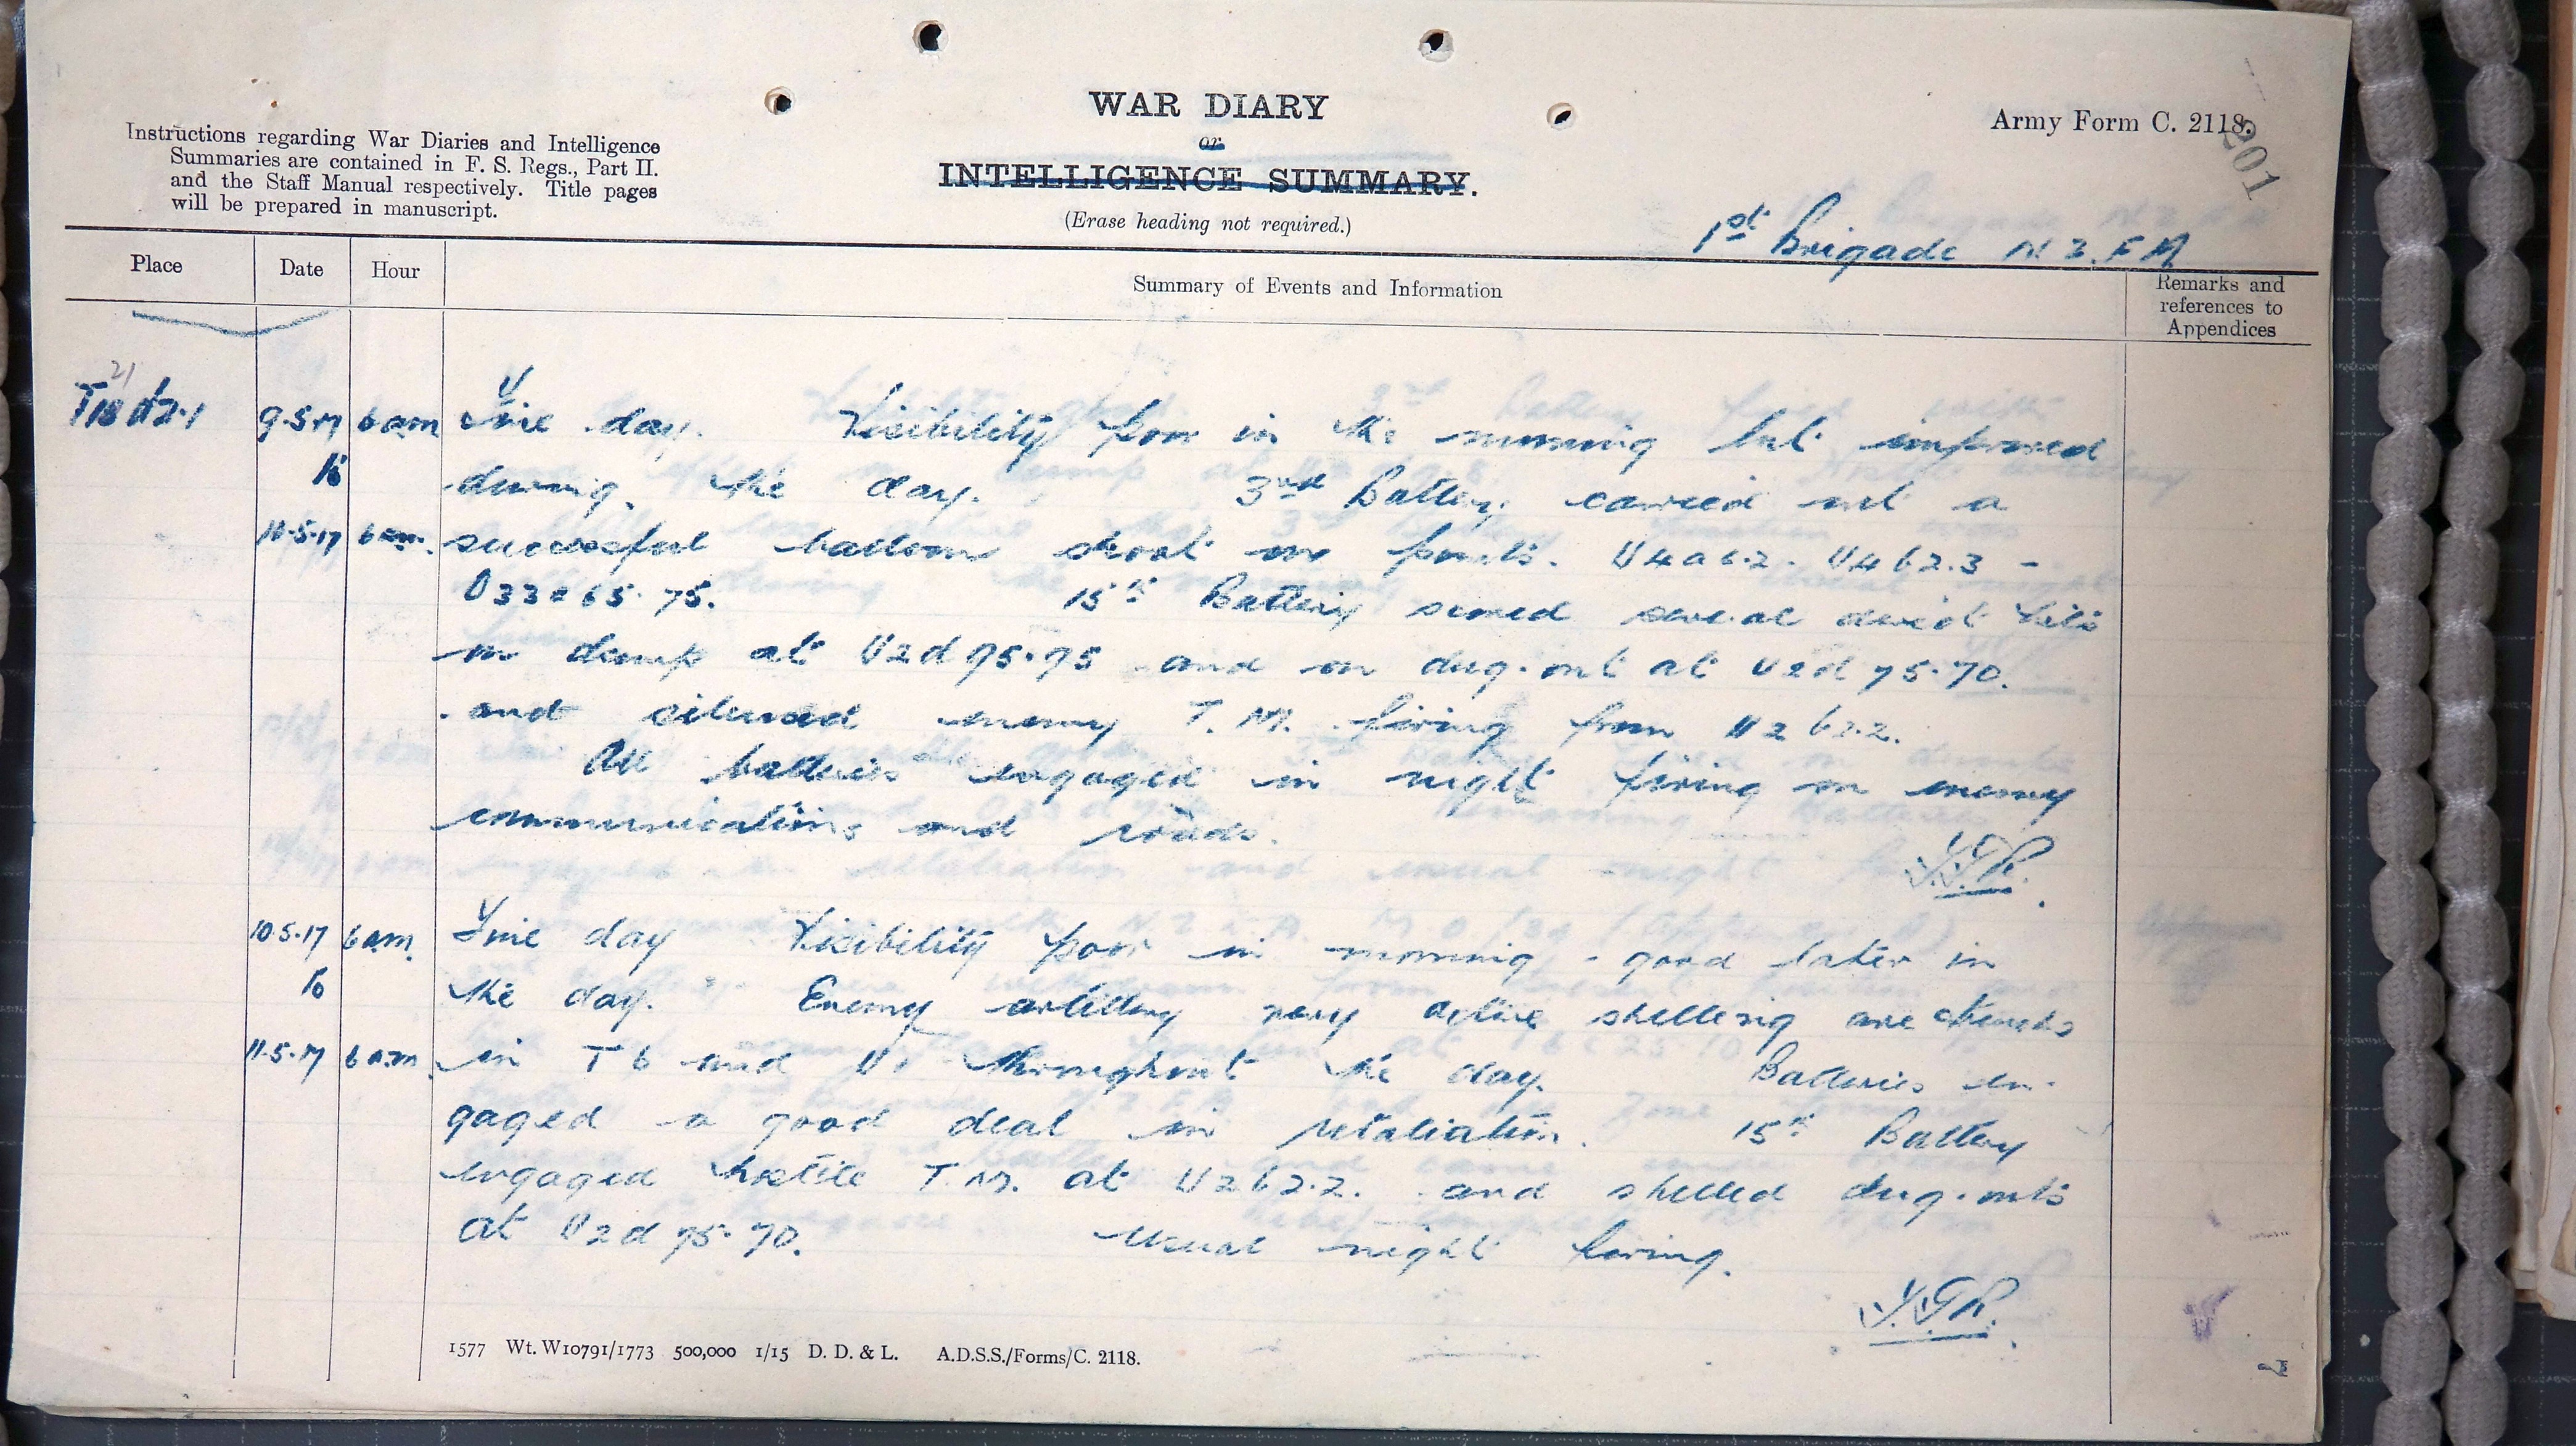 Instructions regarding War Diaries and Intelligence
Summaries are contained in F. S. Regs., Part II.
and the Staff Manual respectively. Title pages
will be prepared in manuscript.
WAR DIARY
or
INTELLIGENCE SUMMARY.
(Erase heading not required.)
Army Form C. 2118.
201
1st Brigade N Z. F A
Place
Date
Hour
Summary of Events and Information
Remarks and
references to
Appendices
21
9.5.17 6 am Fine day. Visibility poor in the morning but improved
to during the day. 3rd Battery carried out a
10.5.17 6 am. successful balloon shoot on points. U4a6.2. U4b2.3 -
65.75. 15th Battery scored several direct hits
on dump at U2d95.95 and on dug-out at U2d75.70.
and silenced enemy T.M. firing from U2b2.2.
All batteries engaged in night firing on enemy
communications and roads.
10.5.17 6am. Fine day Visibility poor in morning - good later in
to the day. Enemy artillery very active shelling our trenches
11.5.17 6 a.m. in T6 and U1 throughout the day. Batteries en-
gaged a good deal in retaliation. 15th Battery
engaged hostile T.M. at U2b2.2. and shelled dug-outs
at U2d75.70. Usual night firing.
1577 Wt. W10791/1773 500,000 1/15 D. D. & L. A.D.S.S./Forms/C. 2118.